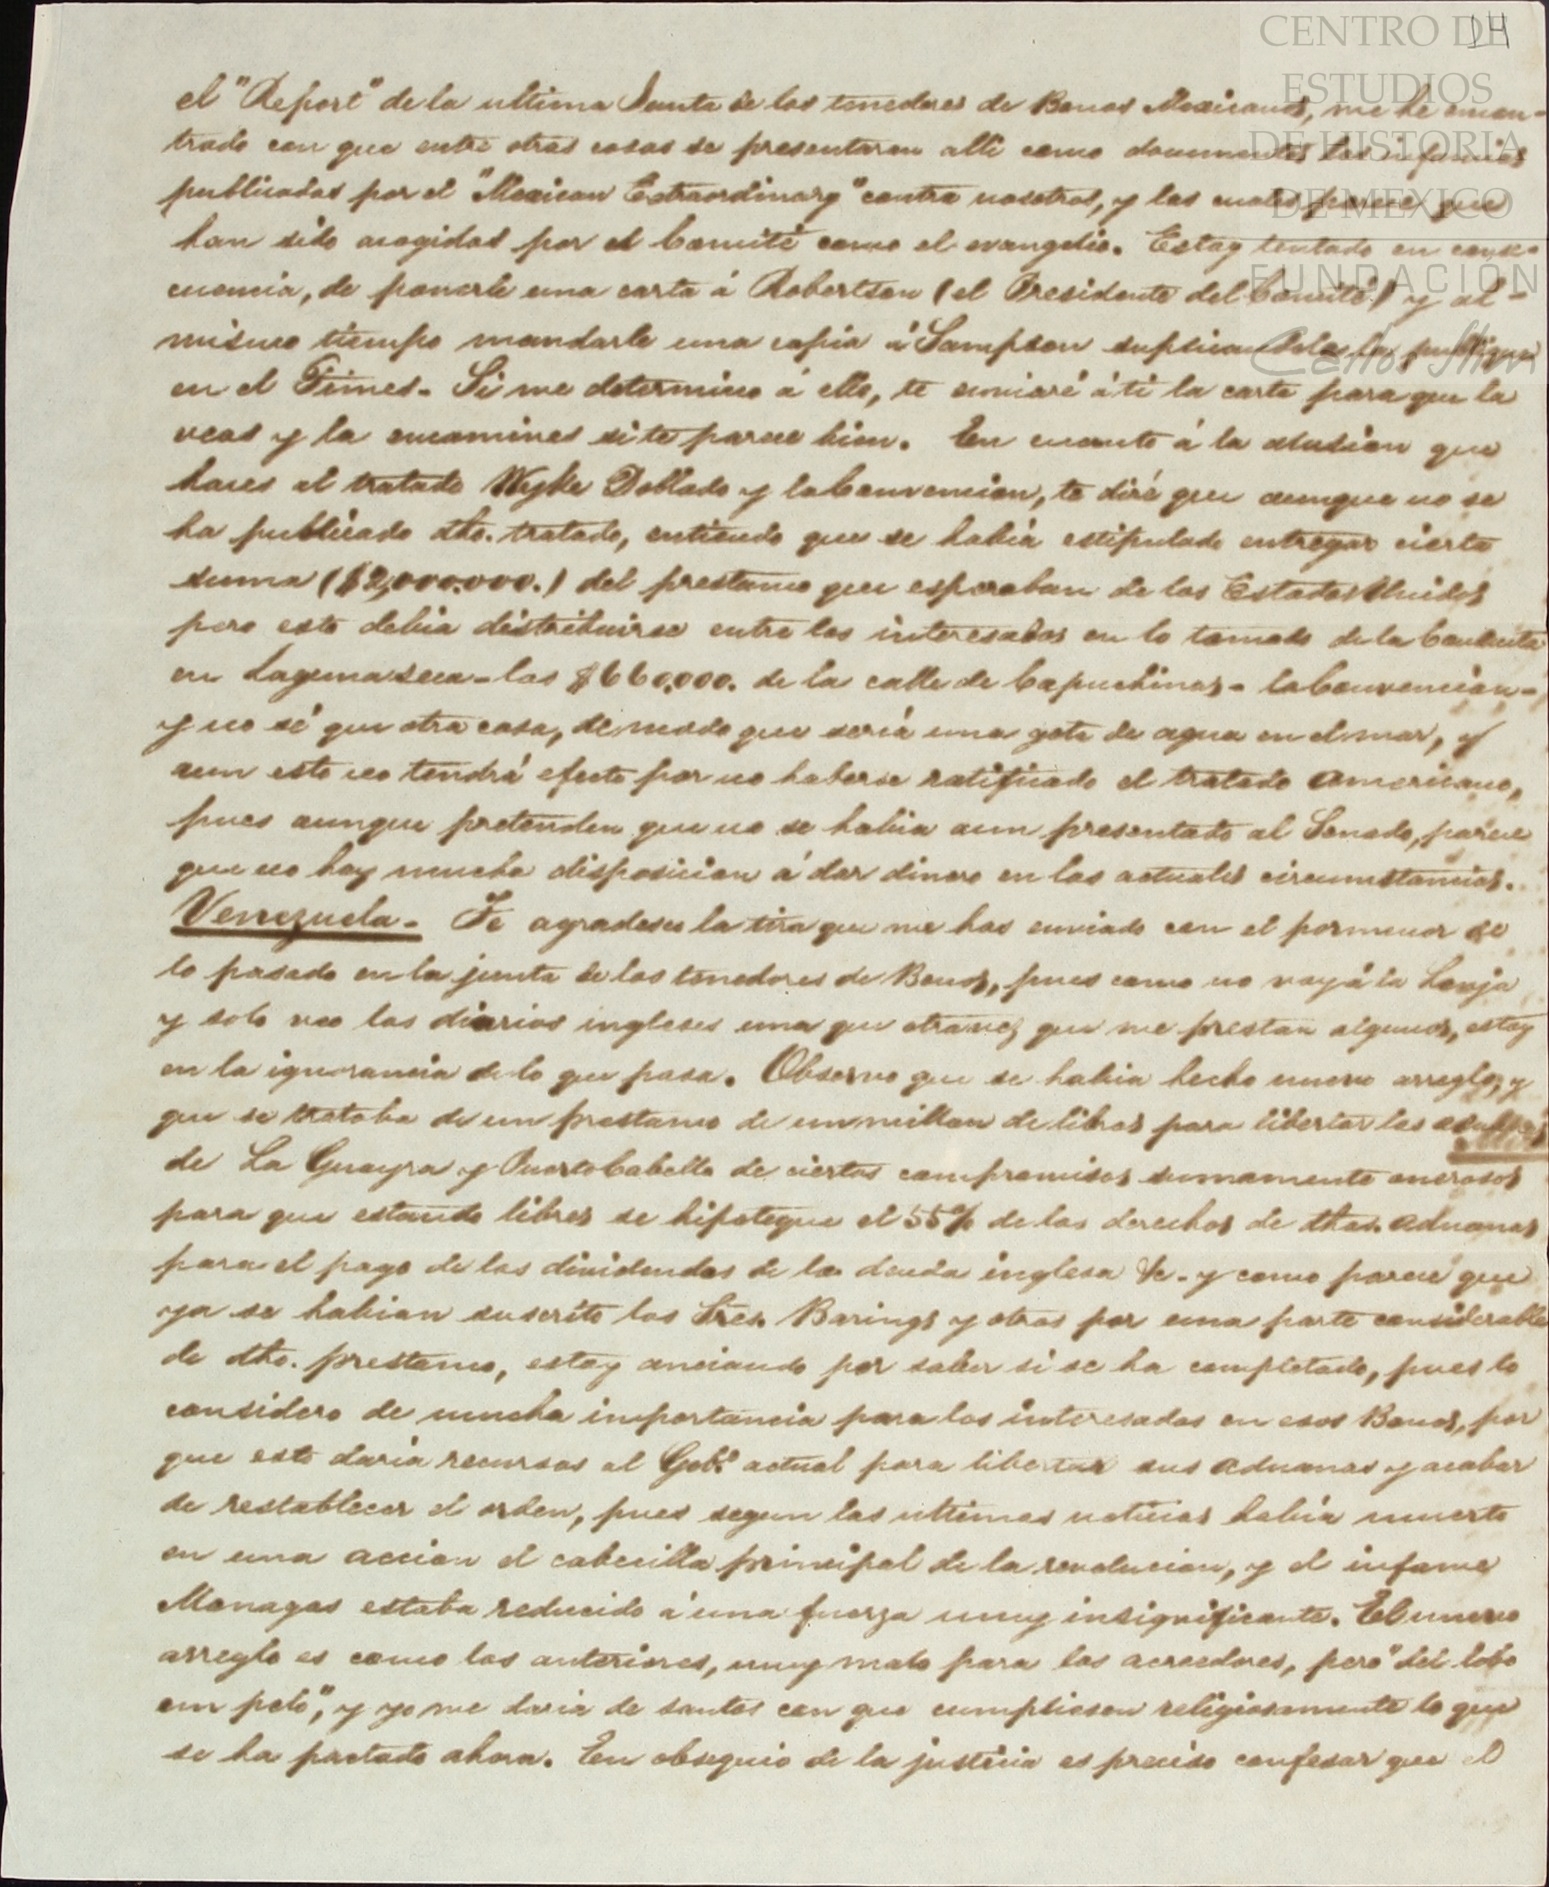 CENTRO DE
ESTUDIOS
DE HISTORIA
DE MEXICO
FUNDACIÓN
Carlos Slim
14
el "Report" de la ultima Junta de los tenedores de Bonos Mexicanos, me he encon-
trado con que entre otras cosas se presentaron alli como documentos las infamias
publicadas por el "Mexican Extraordinary" contra nosotros, y las cuales parece que
han sido acogidas por el Comité como el evangelio. Estoy tentado en conse-
cuencia, de ponerle una carta á Robertson (el Presidente del Comité) y al-
mismo tiempo mandarle una copia á Sampson suplicandole la publique
en el Times. Si me determino á ello, te enviaré á ti la carta para que la
veas y la encamines si te parece bien. En cuanto á la alusion que
haces al tratado Wyke Doblado y la Convencion, te diré que aunque no se
ha publicado dho. tratado, entiendo que se habia estipulado entregar cierta
suma ($2,000.000.) del prestamo que esperaban de los Estados Unidos
pero esto debia distribuirse entre los interesados en lo tomado de la Conducta
en Laguna seca - los $660,000. de la calle de Capuchinas - la Convencion -
y no sé que otra cosa, de modo que seria una gota de agua en el mar, y
aun esto no tendrá efecto por no haberse ratificado el tratado Americano,
pues aunque pretenden que no se habia aun presentado al Senado, parece
que no hay mucha disposicion á dar dinero en las actuales circumstancias.
Venezuela - Te agradesco la tira que me has enviado con el pormenor de
lo pasado en la junta de los tenedores de Bonos, pues como no voy á la Lonja
y solo veo los diarios ingleses una que otra vez que me prestan algunos, estoy
en la ignorancia de lo que pasa. Observo que se habia hecho nuevo arreglo, y
que se trataba de un prestamo de un millon de libras para libertar las aduanas
de La Guayra y Puerto Cabello de ciertos compromisos sumamente onerosos
para que estando libres se hipoteque el 55% de los derechos de dhas. aduanas
para el pago de los dividendos de la deuda inglesa &c. y como parece que
ya se habian suscrito los Sres. Barings y otros por una parte considerable
de dho. prestamo, estoy anciando por saber si se ha completado, pues lo
considero de mucha importancia para los interesados en esos Bonos, por
que esto daria recursos al Gob.º actual para libertar sus aduanas y acabar
de restablecer el orden, pues segun las ultimas noticias habia muerto
en una accion el cabecilla principal de la revolucion, y el infame
Monagas estaba reducido á una fuerza muy insignificante. El nuevo
arreglo es como los anteriores, muy malo para los acreedores, pero "del lobo
un pelo", y yo me daria de santos con que cumpliesen religiosamente lo que
se ha pactado ahora. En obsequio de la justicia es preciso confesar que el